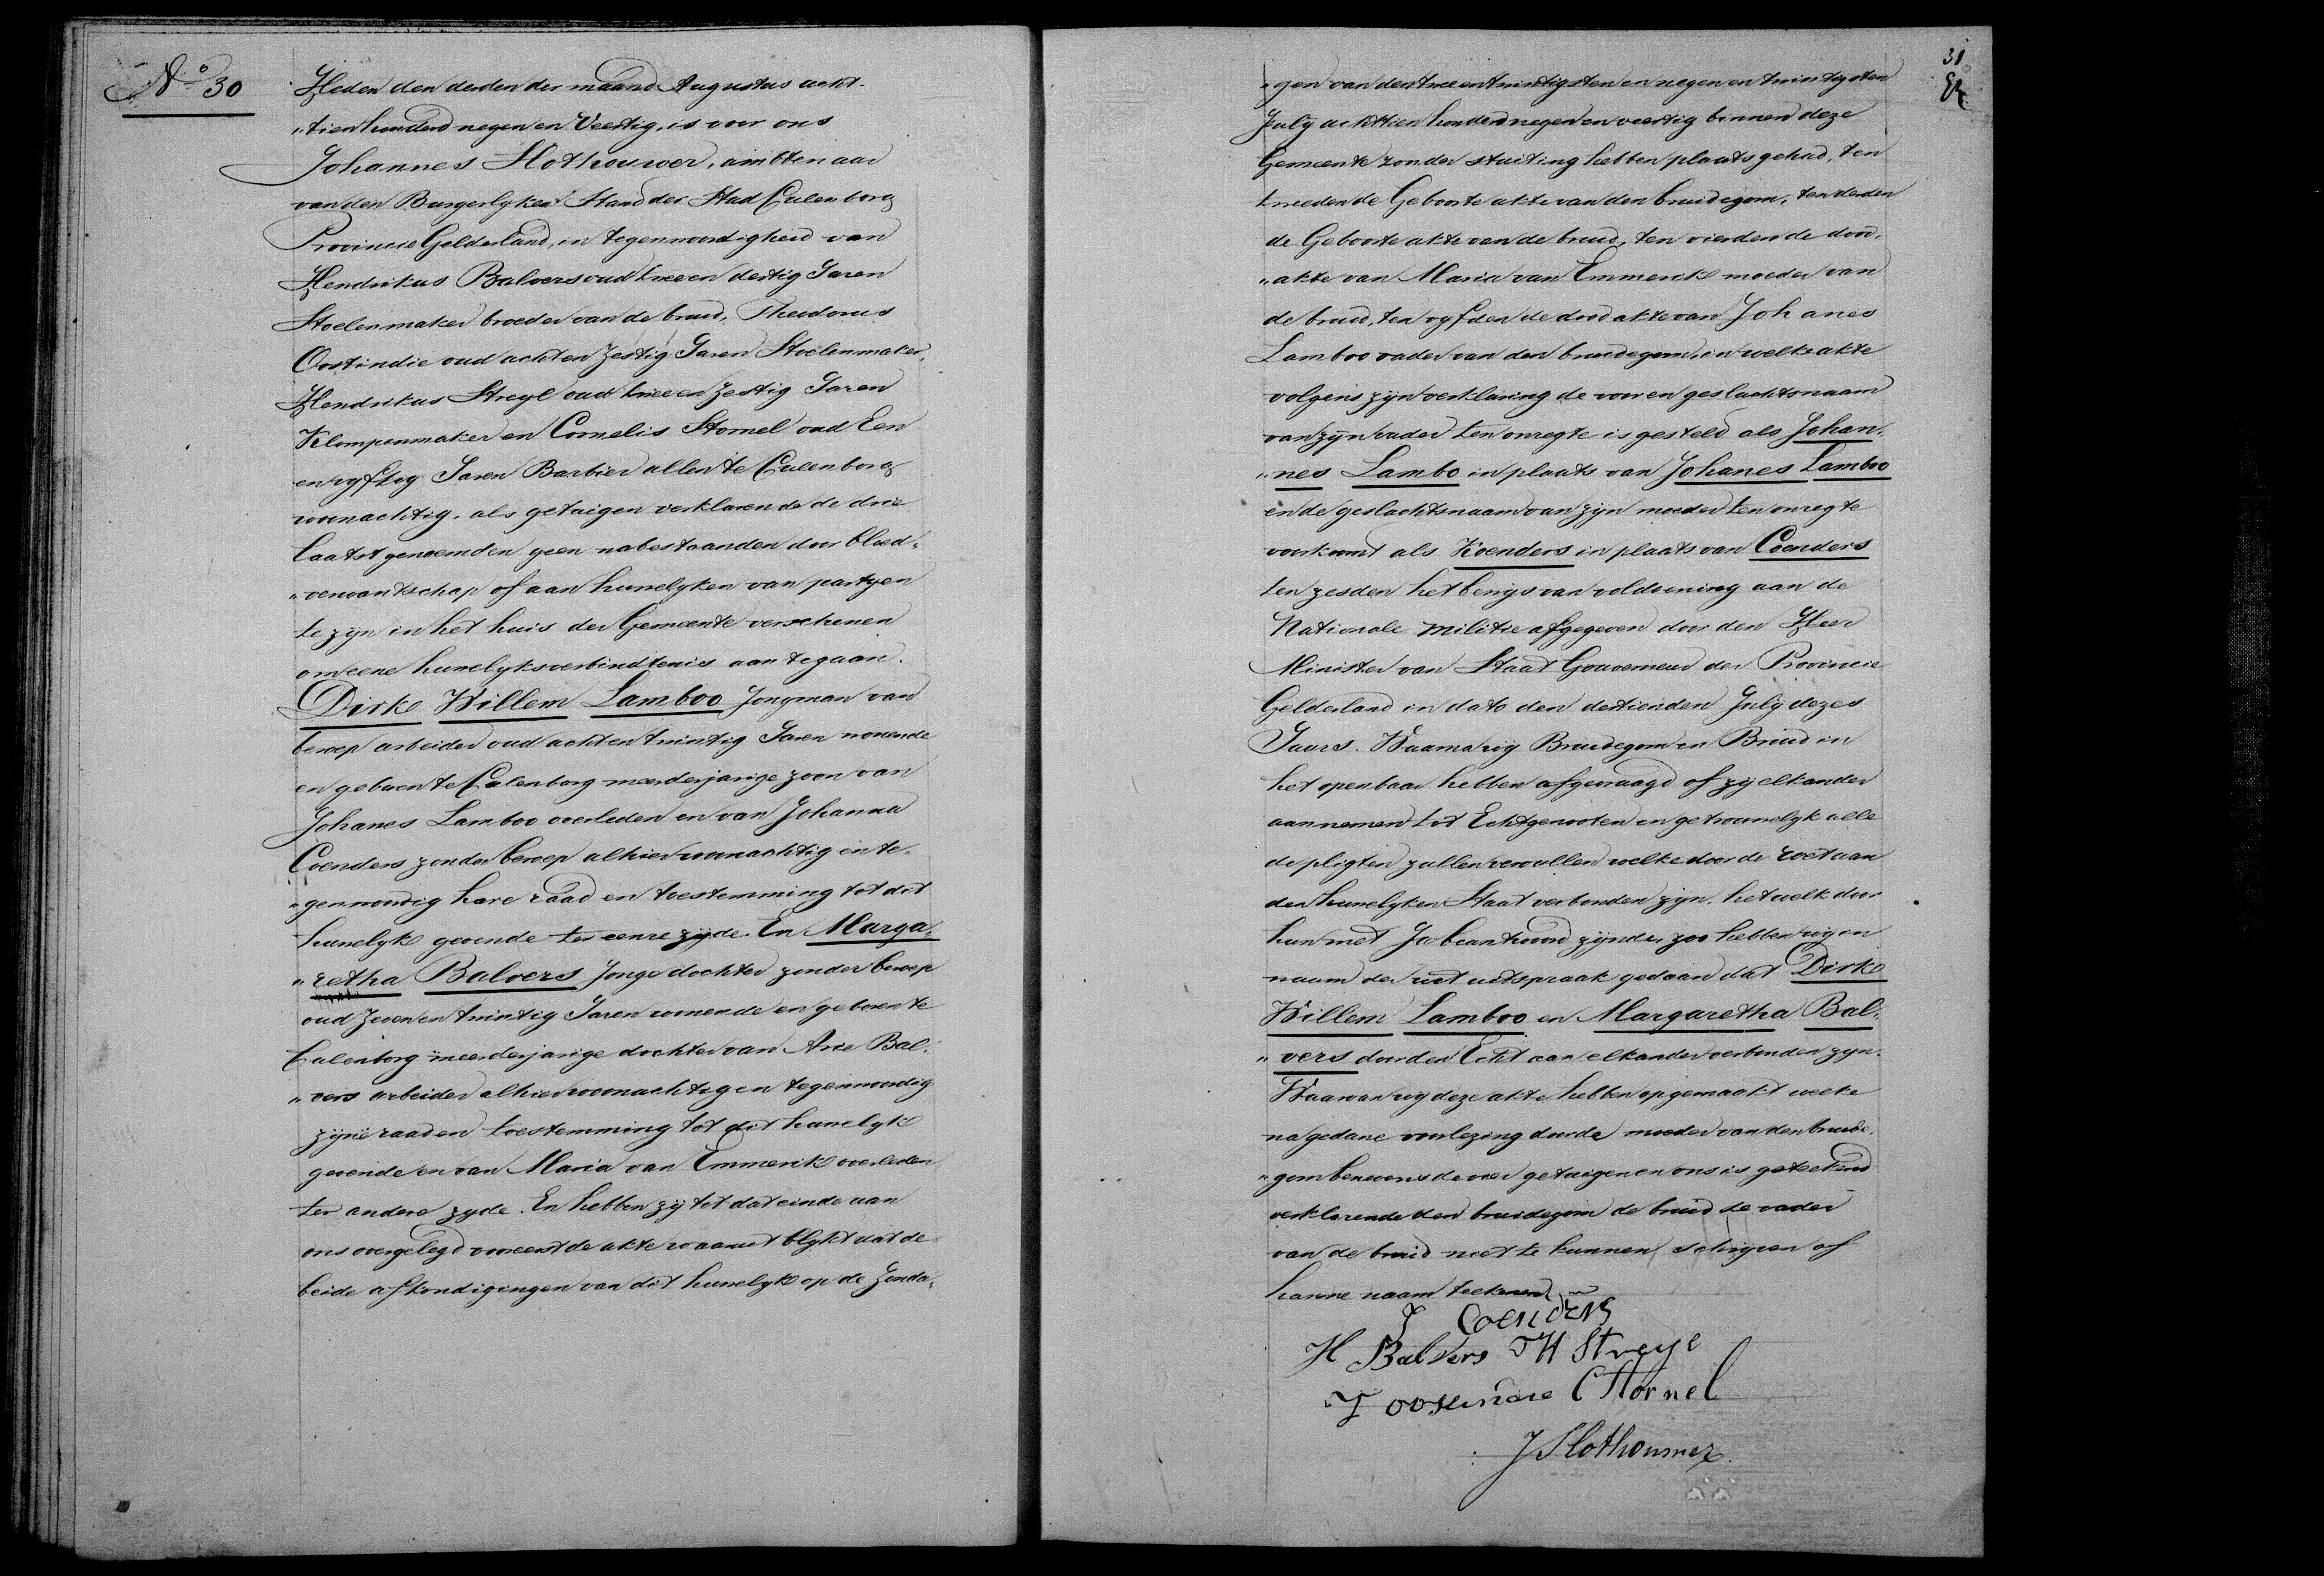 No 30
Heden den derden der maand Augustus acht-
"tien honderd negen en Veertig, is voor ons
Johannes Slothouwer, ambtenaar
van den Burgerlyken Stand der Stad Culenborg
Provincie Gelderland, in tegenwoordigheid van
Hendrikus Balvers oud twee en dertig Jaren
Stoelenmaker broeder van de bruid, Theodorus
Oostindie oud acht en Zestig Jaren Stoelenmaker,
Hendrikus Streyl oud twee en Zestig Jaren
Klompenmaker en Cornelis Stornel oud Een
en vyftig Jaren Barbier allen te Culenborg
woonachtig, als getuigen verklarende de drie
laatst genoemden geen nabestaanden door bloed-
"verwantschap of aan huwelyken van partyen
te zyn in het huis der Gemeente verschenen
om eene huwelyksverbindtenis aan tegaan.
Dirk Willem Lamboo Jongman van
beroep arbeider oud acht en twintig Jaren wonende
en geboren te Culenborg meerderjarige zoon van
Johanes Lamboo overleden en van Johanna
Coenders zonder beroep alhier woonachtig en te-
"genwoordig hare raad en toestemming tot dit
huwelyk gevende ter eenre zyde. En Marga-
"retha Balvers Jonge dochter zonder beroep
oud Zeven en twintig Jaren wonende en geboren te
Culenborg meerderjarige dochter van Arie Bal-
"vers arbeider alhier woonachtig en tegenwoordig
zyne raad en toestemming tot dit huwelyk
gevende en van Maria van Emmerik overleden
ter andere zyde. En hebben zy tot dat einde aan
ons overgelegd vooreerst de akte waaruit blykt dat de
beide afkondigingen van dit huwelyk op de Zonda-
31
"gen van den twee en twintigsten en negen en twintigsten
July achttien honderd negen en veertig binnen deze
Gemeente zonder stuiting hebben plaats gehad, ten
tweeden de Geboorte akte van den bruidegom, ten derden
de Geboorte akte van de bruid, ten vierden de dood-
"akte van Maria van Emmerik moeder van
de bruid, ten vyfden de dood akte van Johanes
Lamboo vader van den bruidegom, in welke akte
volgens zyn verklaring de voor en geslachtsnaam
van zyn vader ten onregte is gesteld als Johan-
"nes Lambo in plaats van Johanes Lamboo
en de geslachtsnaam van zyn moeder ten onregte
voorkomt als Koenders in plaats van Coenders
ten zesden het bewys van voldoening aan de
Nationale Militie afgegeven door den Heer
Minister van Staat Gouverneur der Provincie
Gelderland in dato den dertienden July dezes
Jaars. Waarna wy Bruidegom en Bruid in
het openbaar hebben afgevraagd of zy elkander
aannemen tot Echtgenooten en getrouwelyk alle
de pligten zullen vervullen welke door de wet aan
den huwelyken Staat verbonden zyn, het welk door
hun met Ja beantwoord zynde, zoo hebben wy in
naam der wet uitspraak gedaan dat Dirk
Willem Lamboo en Margaretha Bal-
"vers door den Echt aan elkander verbonden zyn.
Waarvan wy deze akte hebben opgemaakt welke
na gedane voorlezing door de moeder van den bruide-
"gom benevens de vier getuigen en ons is geteekend
verklarende den bruidegom de bruid de vader
van de bruid niet te kunnen schryven of
hunne naam teekenen
J Coenders
H Balvers H Streyl
T oostindie C Stornel
J Slothouwer